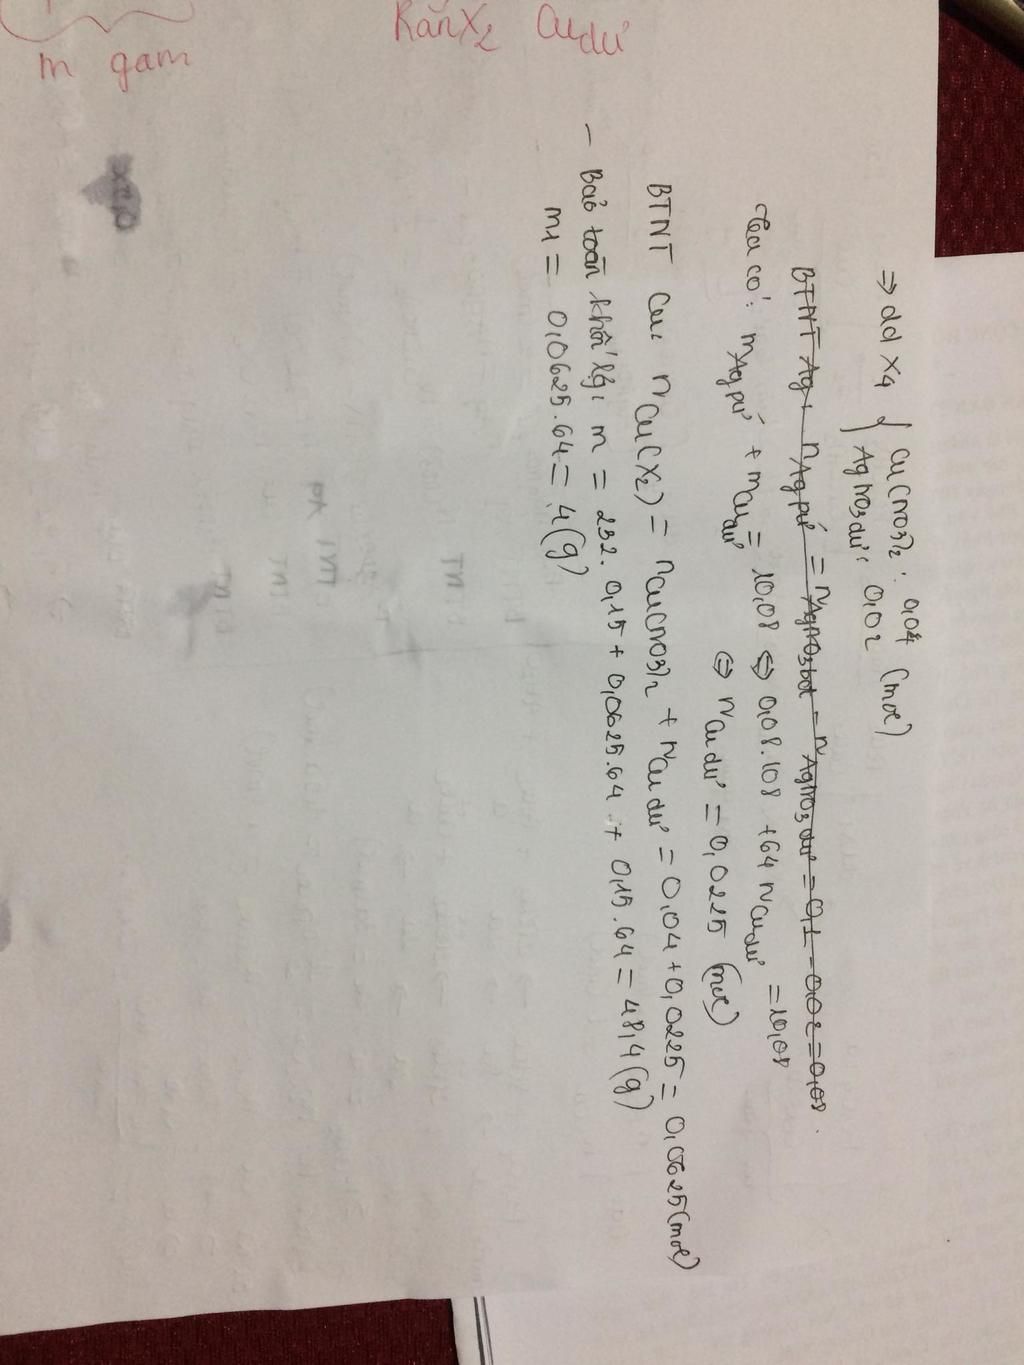 Rắn X2 Cu dư
m gam
=> dd X4 { Cu(NO3)2 : 0,04 (mol)
AgNO3 dư : 0,02
BTNT Ag: nAg pứ = nAgNO3 bđ - nAgNO3 dư = 0,1 - 0,02 = 0,08.
Ta có: mAg pứ + mCu dư = 10,08 <=> 0,08.108 + 64 nCu dư = 10,08
<=> nCu dư = 0,0225 (mol)
BTNT Cu: nCu(X2) = nCu(NO3)2 + nCu dư = 0,04 + 0,0225 = 0,0625 (mol)
- Bảo toàn khối lg: m = 232. 0,15 + 0,0625.64 + 0,15.64 = 48,4 (g)
m1 = 0,0625.64 = 4 (g)